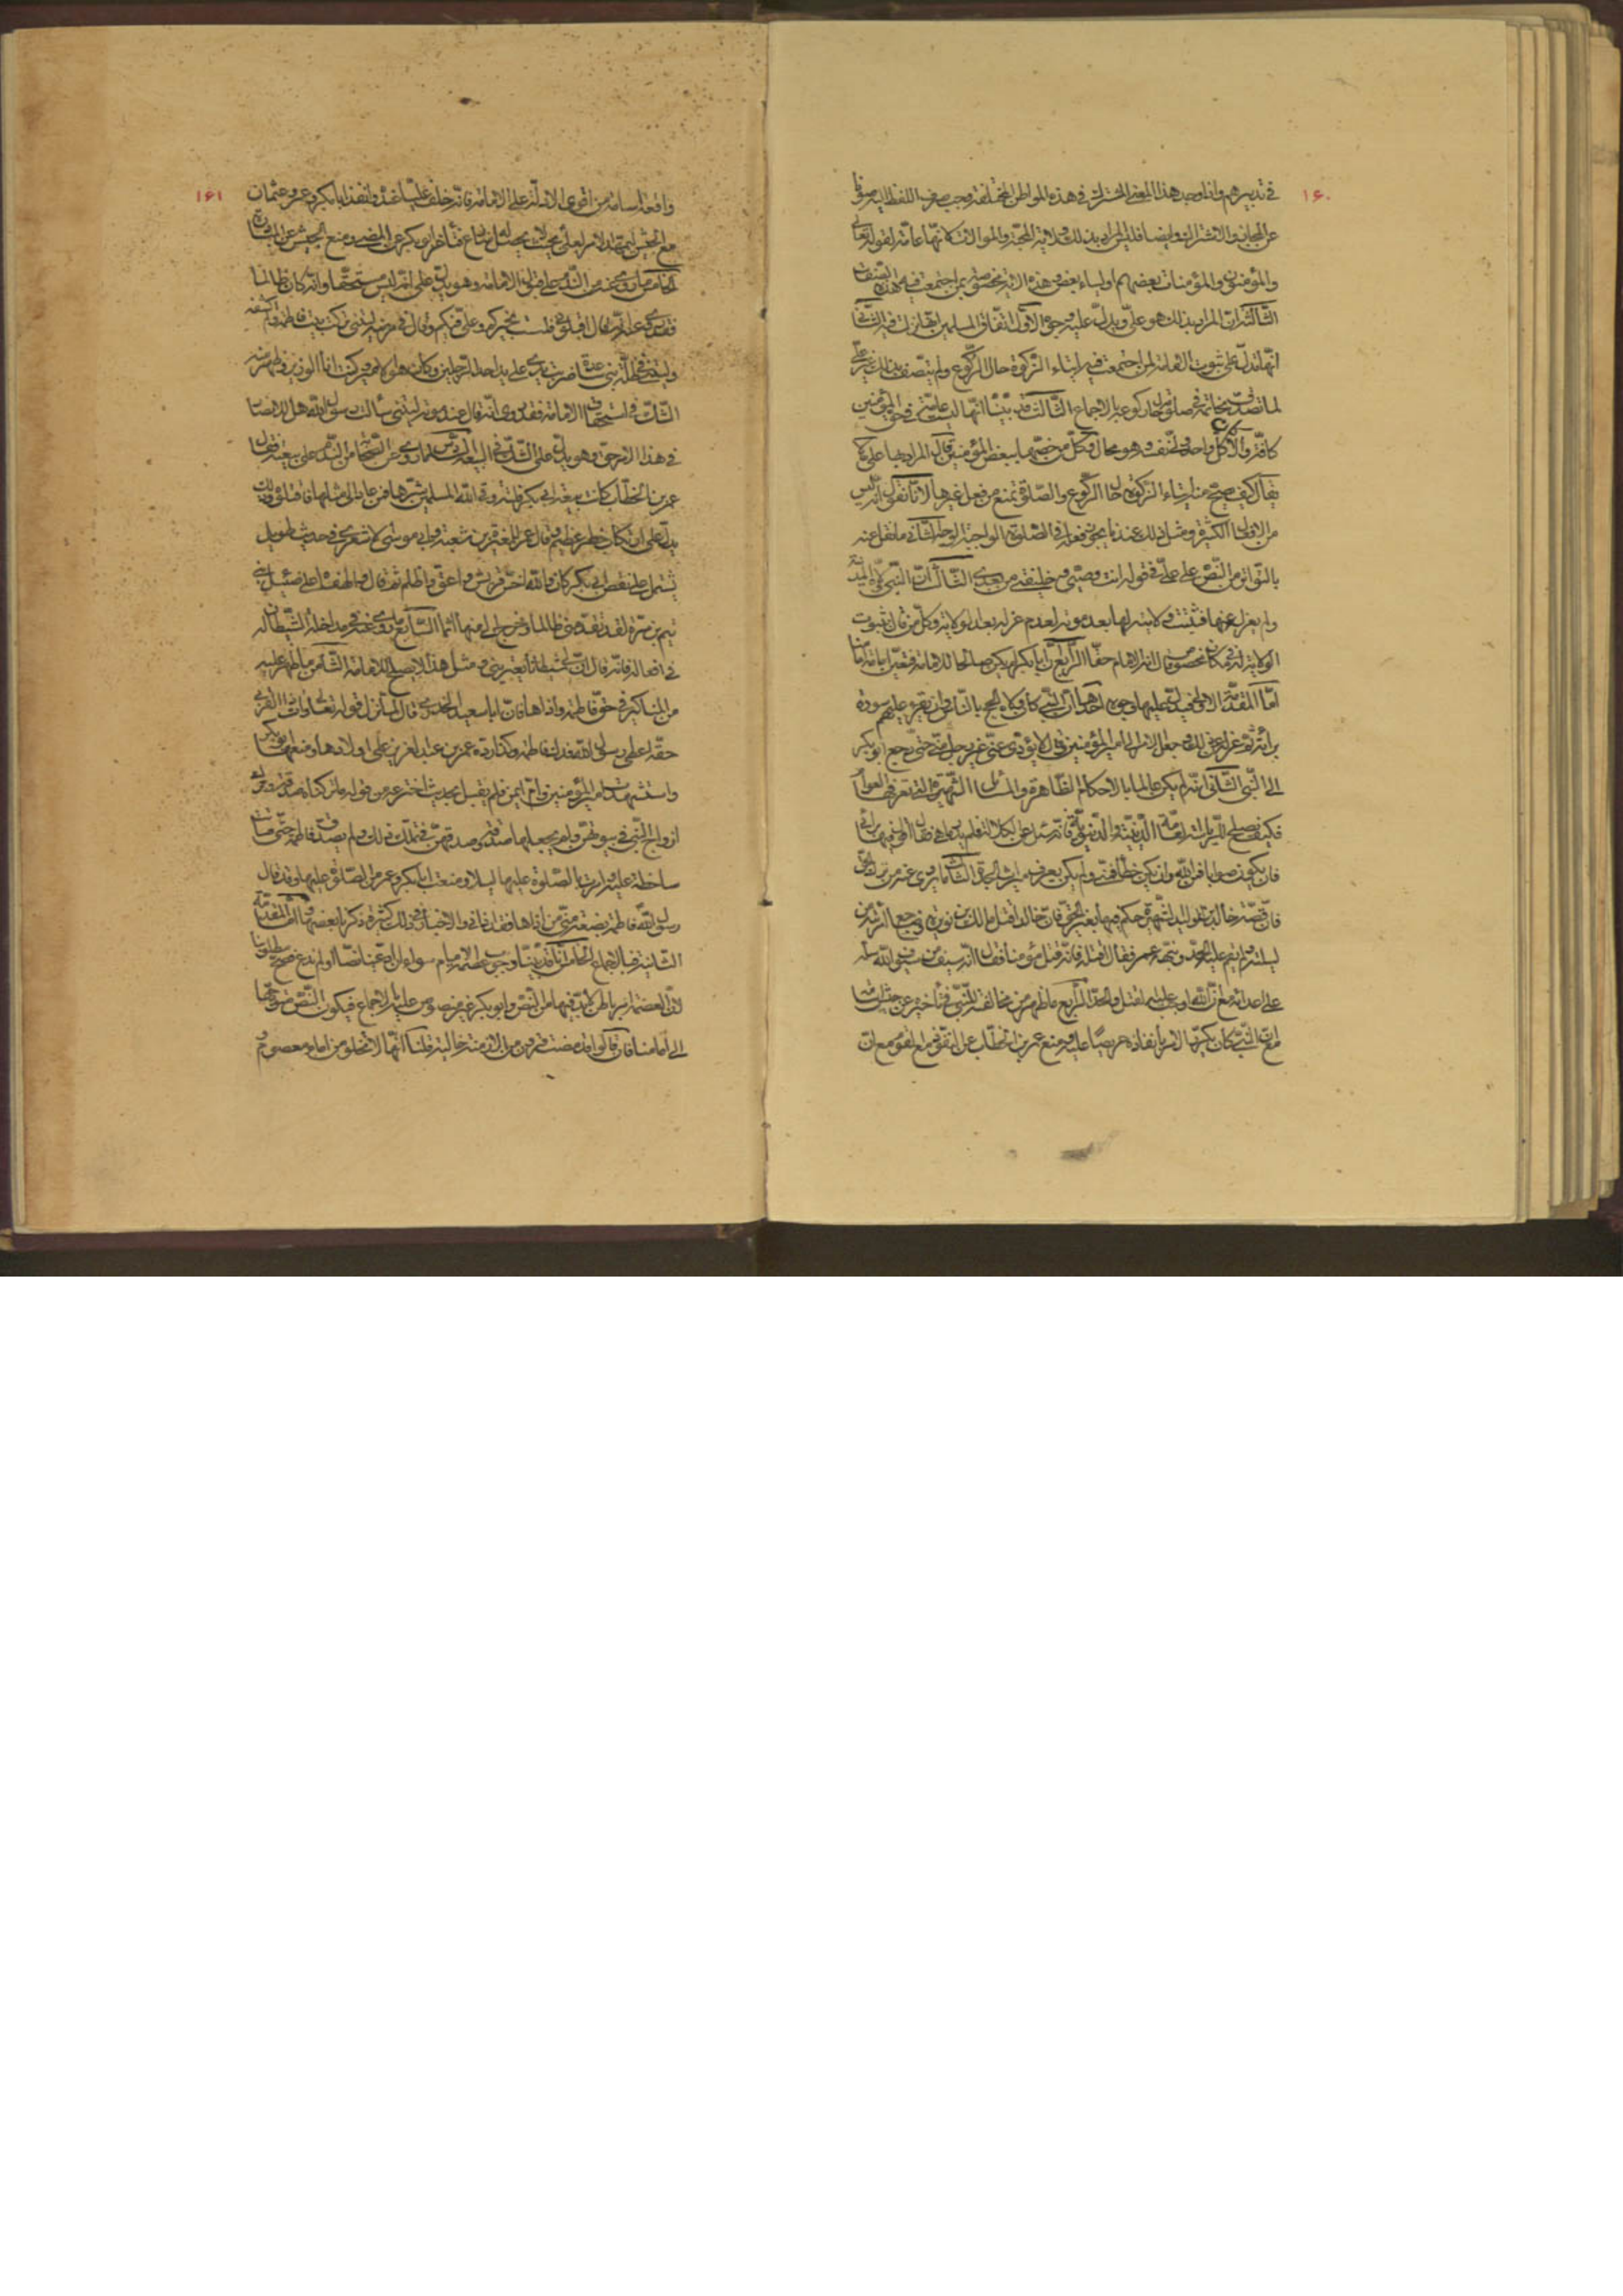 ١۶٠
في تدبيرهم واذا وجد هذا المعنى المشترك في هذه المواطن المختلفة وجب صرف اللفظ اليه صرفا
عن المجاز والاشتراك وايضا فليس المراد بذلك ولاية المحبة والموالاة لانها عامة لقوله تعالى
والمؤمنون والمؤمنات بعضهم اولياء بعض وهذه الاية مخصوصة بمن اجتمعت فيه هذه الصفات
الثالثة ان المراد بذلك هو علي ويدل عليه وجوه الاول اتفاق المسلمين انها نزلت فيه الثاني
انها تدل على ثبوت الولاية لمن اجتمعت فيه ايتاء الزكوة حال الركوع ولم يتصف بذلك غير علي
لما تصدق بخاتمه في صلوته حال ركوعه بالاجماع الثالث قد بينا انها ليست عامة في حق المؤمنين
كافة والا لكان كل واحد ولي نفسه وهو محال وكل من خصصها ببعض المؤمنين قال المراد بها علي لا
يقال كيف صح منه ايتاء الزكوة حال الركوع والصلوة تمنع من فعل غيرها لانا نقول انه ليس
من الافعال الكثيرة ومثل ذلك عندنا يجوز فعله في الصلوة الواجبة الوجه الثاني ما نقل عنه
بالتواتر من النص على علي في قوله انت وصيي وخليفتي من بعدي الثالث ان النبي ولاه المدينة
ولم يعزله عنها فتثبت ولايته لها بعد موته لعدم عزله بعد الولاية وكل من قال بثبوت
الولاية له في مكان مخصوص قال انه الامام حقا الرابع ان ابا بكر لم يكن صالحا للامامة فتعين امامة امامنا
اما المقدمة الاولى فيدل عليها وجوه احدها ان النبي ولاه الحج بالناس وان يقرء عليهم سورة
برائة ثم عزله عن ذلك وجعل الامر الى امير المؤمنين وقال لا يؤدي عني غير رجل مني حتى رجع ابو بكر
الى النبي الثاني انه لم يكن عالما بالاحكام الظاهرة والمسائل الشهيرة التي تعرفها العوام
فكيف يصلح للرياسة العامة الدينية والدنيوية فانه سئل عن الكلالة فلم يدر ما هي فقال اقول فيها برأيي
فان يكون صوابا فمن الله وان يكن خطأ فمني ولم يكن يعرف ميراث الجدة الثالث ما روي عنه من ترك الحق
فان قصة خالد بن الوليد شهيرة حكم فيها بغير الحق فان خالدا قتل مالك بن نويرة وضاجع امرأته من
ليلته ولم يقم عليه الحد ونبهه عمر فقال اقتله فانه قتل مؤمنا فقال انه سيف من سيوف الله سله
على اعدائه مع ان الله اوجب عليه القتل والحد الرابع ما ظهر من مخالفته للنبي في تأخيره عن جيش اسامة
مع ان النبي كان يكرر الامر بانفاذه حريصا عليه ومنع عمر بن الخطاب عن النفوذ مع القوم مع ان
١۶١
واقعة اسامة من اقوى الادلة على الامامة فانه خلف عليا عنده وانفذ ابا بكر وعمر وعثمان
مع الجيش ليمهد الامر لعلي بحيث لا يحصل له نزاع فتأخر ابو بكر عن المضي ومنع الجيش عن المبادرة
الخامس ما روي عنه من الندم على توليته الامامة وهو يدل على انه ليس مستحقا وانه كان ظالما
فقد روي عنه انه قال اقيلوني فلست بخيركم وعلي فيكم وقال في مرضه ليتني تركت بيت فاطمة ولم اكشفه
وليتني في ظلة بني ساعدة ضربت يدي على يد احد الرجلين وكان هو الامير وكنت انا الوزير وظهر منه
الشك في استحقاق الامامة فقد روي انه قال عند موته ليتني سألت رسول الله هل للانصار
في هذا الامر حق وهو يدل على الشك في البيعة السادس ما روي عن الشيخ من الندم على بيعته فقال
عمر بن الخطاب كانت بيعة ابي بكر فلتة وقى الله المسلمين شرها فمن عاد الى مثلها فاقتلوه وذلك
يدل على انه كان خطرا عظيما وقال عمر للمغيرة بن شعبة ولابي موسى الاشعري في حديث طويل
يشتمل على نقص ابي بكر كان والله احسد قريش واعق واظلم ثم قال والهفتاه على ضئيل بني
تيم بن مرة لقد تقدمني ظالما وخرج الي منها اثما السابع ما روي عنه في مداخلة الشيطان له
في افعاله فانه قال ان لي شيطانا يعتريني ومثل هذا لا يصلح للامامة الثامن ما ظهر عليه
من المناكير في حق فاطمة واذاها فان ابا سعيد الخدري قال لما نزل قوله تعالى وآت ذا القربى
حقه اعطى رسول الله فدك فاطمة وكذا رده عمر بن عبد العزيز على اولادها ومنعها ابو بكر
واستشهدت امير المؤمنين وام ايمن فلم يقبل بحديث اخترعه من قوله ما تركناه صدقة وترك
ازواج النبي في بيوتهن ولم يجعلها صدقة وصدقهن في تملك ذلك ولم يصدق فاطمة حتى ماتت
ساخطة عليه وامرت بالصلوة عليها ليلا ومنعت ابا بكر وعمر من الصلوة عليها وقد قال
رسول الله فاطمة بضعة مني من اذاها فقد اذاني والاخبار في ذلك كثيرة ذكرنا بعضها واما المقدمة
الثانية فبالاجماع الخامس انا قد بينا وجوب عصمة الامام سواء ان ادعينا نصا او لم ندع صح مطلوبنا
لان العصمة امر باطن لا بد فيها من النص وابو بكر غير منصوص عليه بالاجماع فيكون النص متوجها
الى امامنا فان قالوا قد مضت قرون من الازمنة خالية قلنا انها لا تخلو من امام معصوم